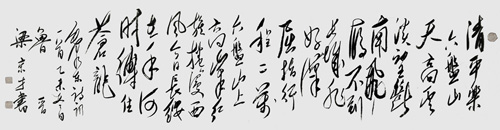 清平乐
六盘山
天高云
淡望断
南飞
雁不到
长城非
好汉
屈指行
程二万
六盘山上
高峰红
旗漫卷西
风今日长缨
在手何
时缚住
苍龙